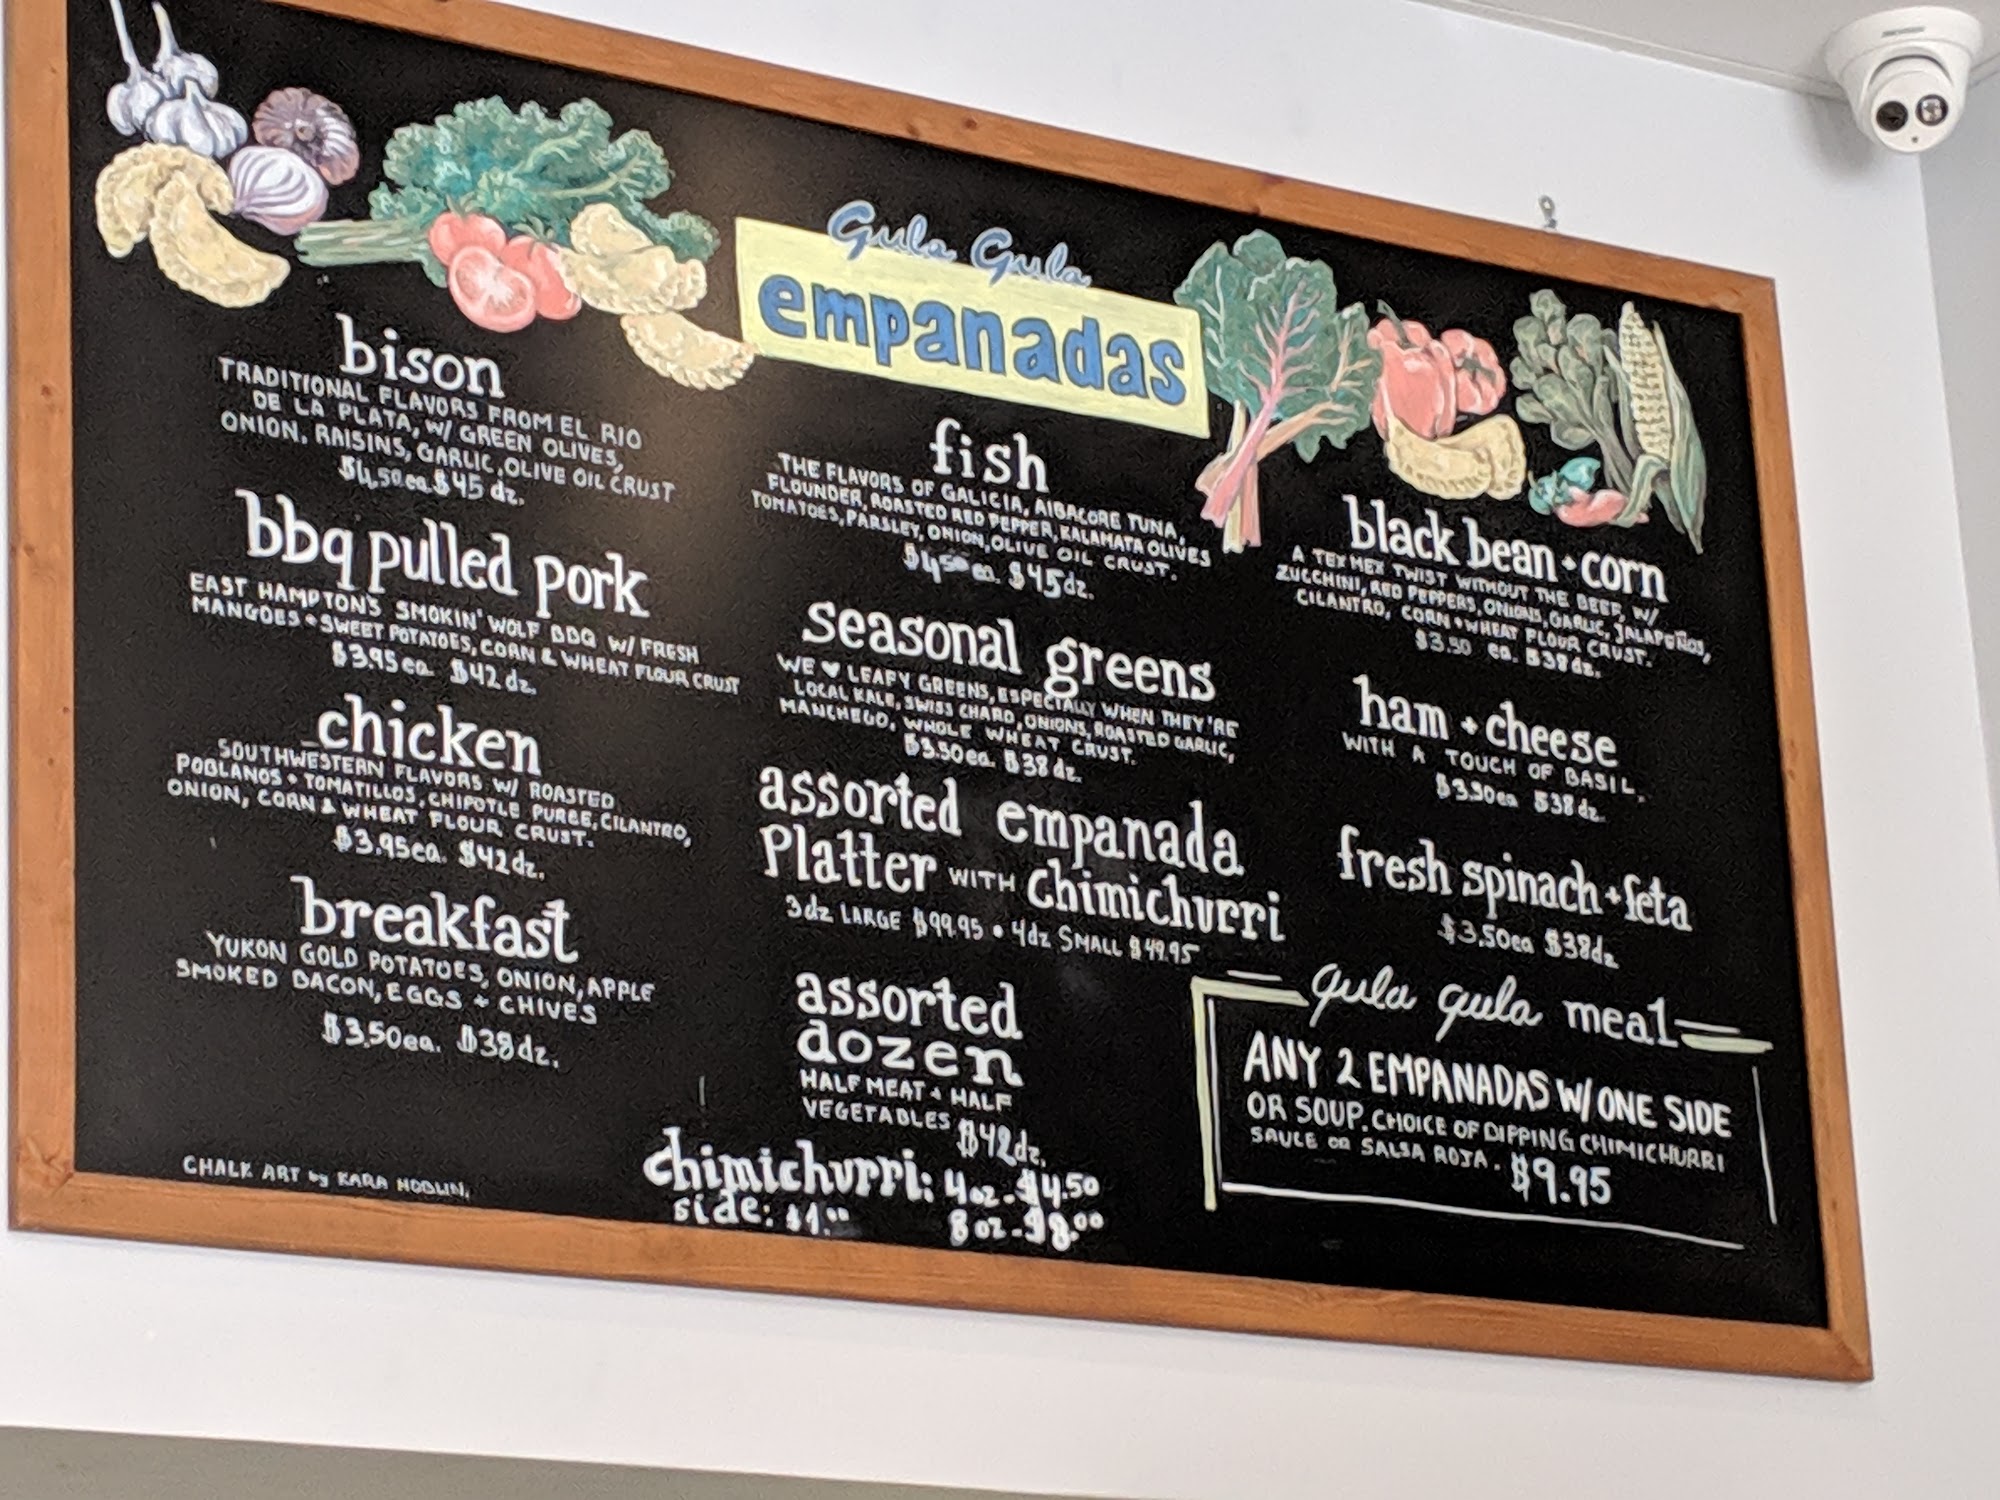 Gula Gula
empanadas
bison
TRADITIONAL FLAVORS FROM EL RIO
DE LA PLATA, W/ GREEN OLIVES,
ONION, RAISINS, GARLIC, OLIVE OIL CRUST
$4.50 ea. $45 dz.
bbq pulled pork
EAST HAMPTON'S SMOKIN' WOLF BBQ W/ FRESH
MANGOES + SWEET POTATOES, CORN & WHEAT FLOUR CRUST
$3.95 ea. $42 dz.
chicken
SOUTHWESTERN FLAVORS W/ ROASTED
POBLANOS + TOMATILLOS, CHIPOTLE PUREE, CILANTRO,
ONION, CORN & WHEAT FLOUR CRUST.
$3.95 ea. $42 dz.
breakfast
YUKON GOLD POTATOES, ONION, APPLE
SMOKED BACON, EGGS + CHIVES
$3.50 ea. $38 dz.
CHALK ART by KARA HOBLIN.
fish
THE FLAVORS OF GALICIA, AlBACORE TUNA,
FLOUNDER, ROASTED RED PEPPER, KALAMATA OLIVES
TOMATOES, PARSLEY, ONION, OLIVE OIL CRUST.
$4.50 ea. $45 dz.
seasonal greens
WE ♥ LEAFY GREENS, ESPECIALLY WHEN THEY'RE
LOCAL KALE, SWISS CHARD, ONIONS, ROASTED GARLIC,
MANCHEGO, WHOLE WHEAT CRUST.
$3.50 ea. $38 dz.
assorted empanada
Platter WITH Chimichurri
3dz LARGE $99.95 • 4dz SMALL $49.95
assorted
dozen
HALF MEAT + HALF
VEGETABLES $42 dz.
chimichurri: 4oz - $4.50
side: $1.00 8oz - $8.00
black bean + corn
A TEX MEX TWIST WITHOUT THE BEEF, W/
ZUCCHINI, RED PEPPERS, ONIONS, GARLIC, JALAPEÑOS,
CILANTRO, CORN + WHEAT FLOUR CRUST.
$3.50 ea. $38 dz.
ham + cheese
WITH A TOUCH OF BASIL.
$3.50 ea $38 dz.
fresh spinach + feta
$3.50 ea $38 dz
gula gula meal
ANY 2 EMPANADAS W/ ONE SIDE
OR SOUP. CHOICE OF DIPPING CHIMICHURRI
SAUCE OR SALSA ROJA. $9.95